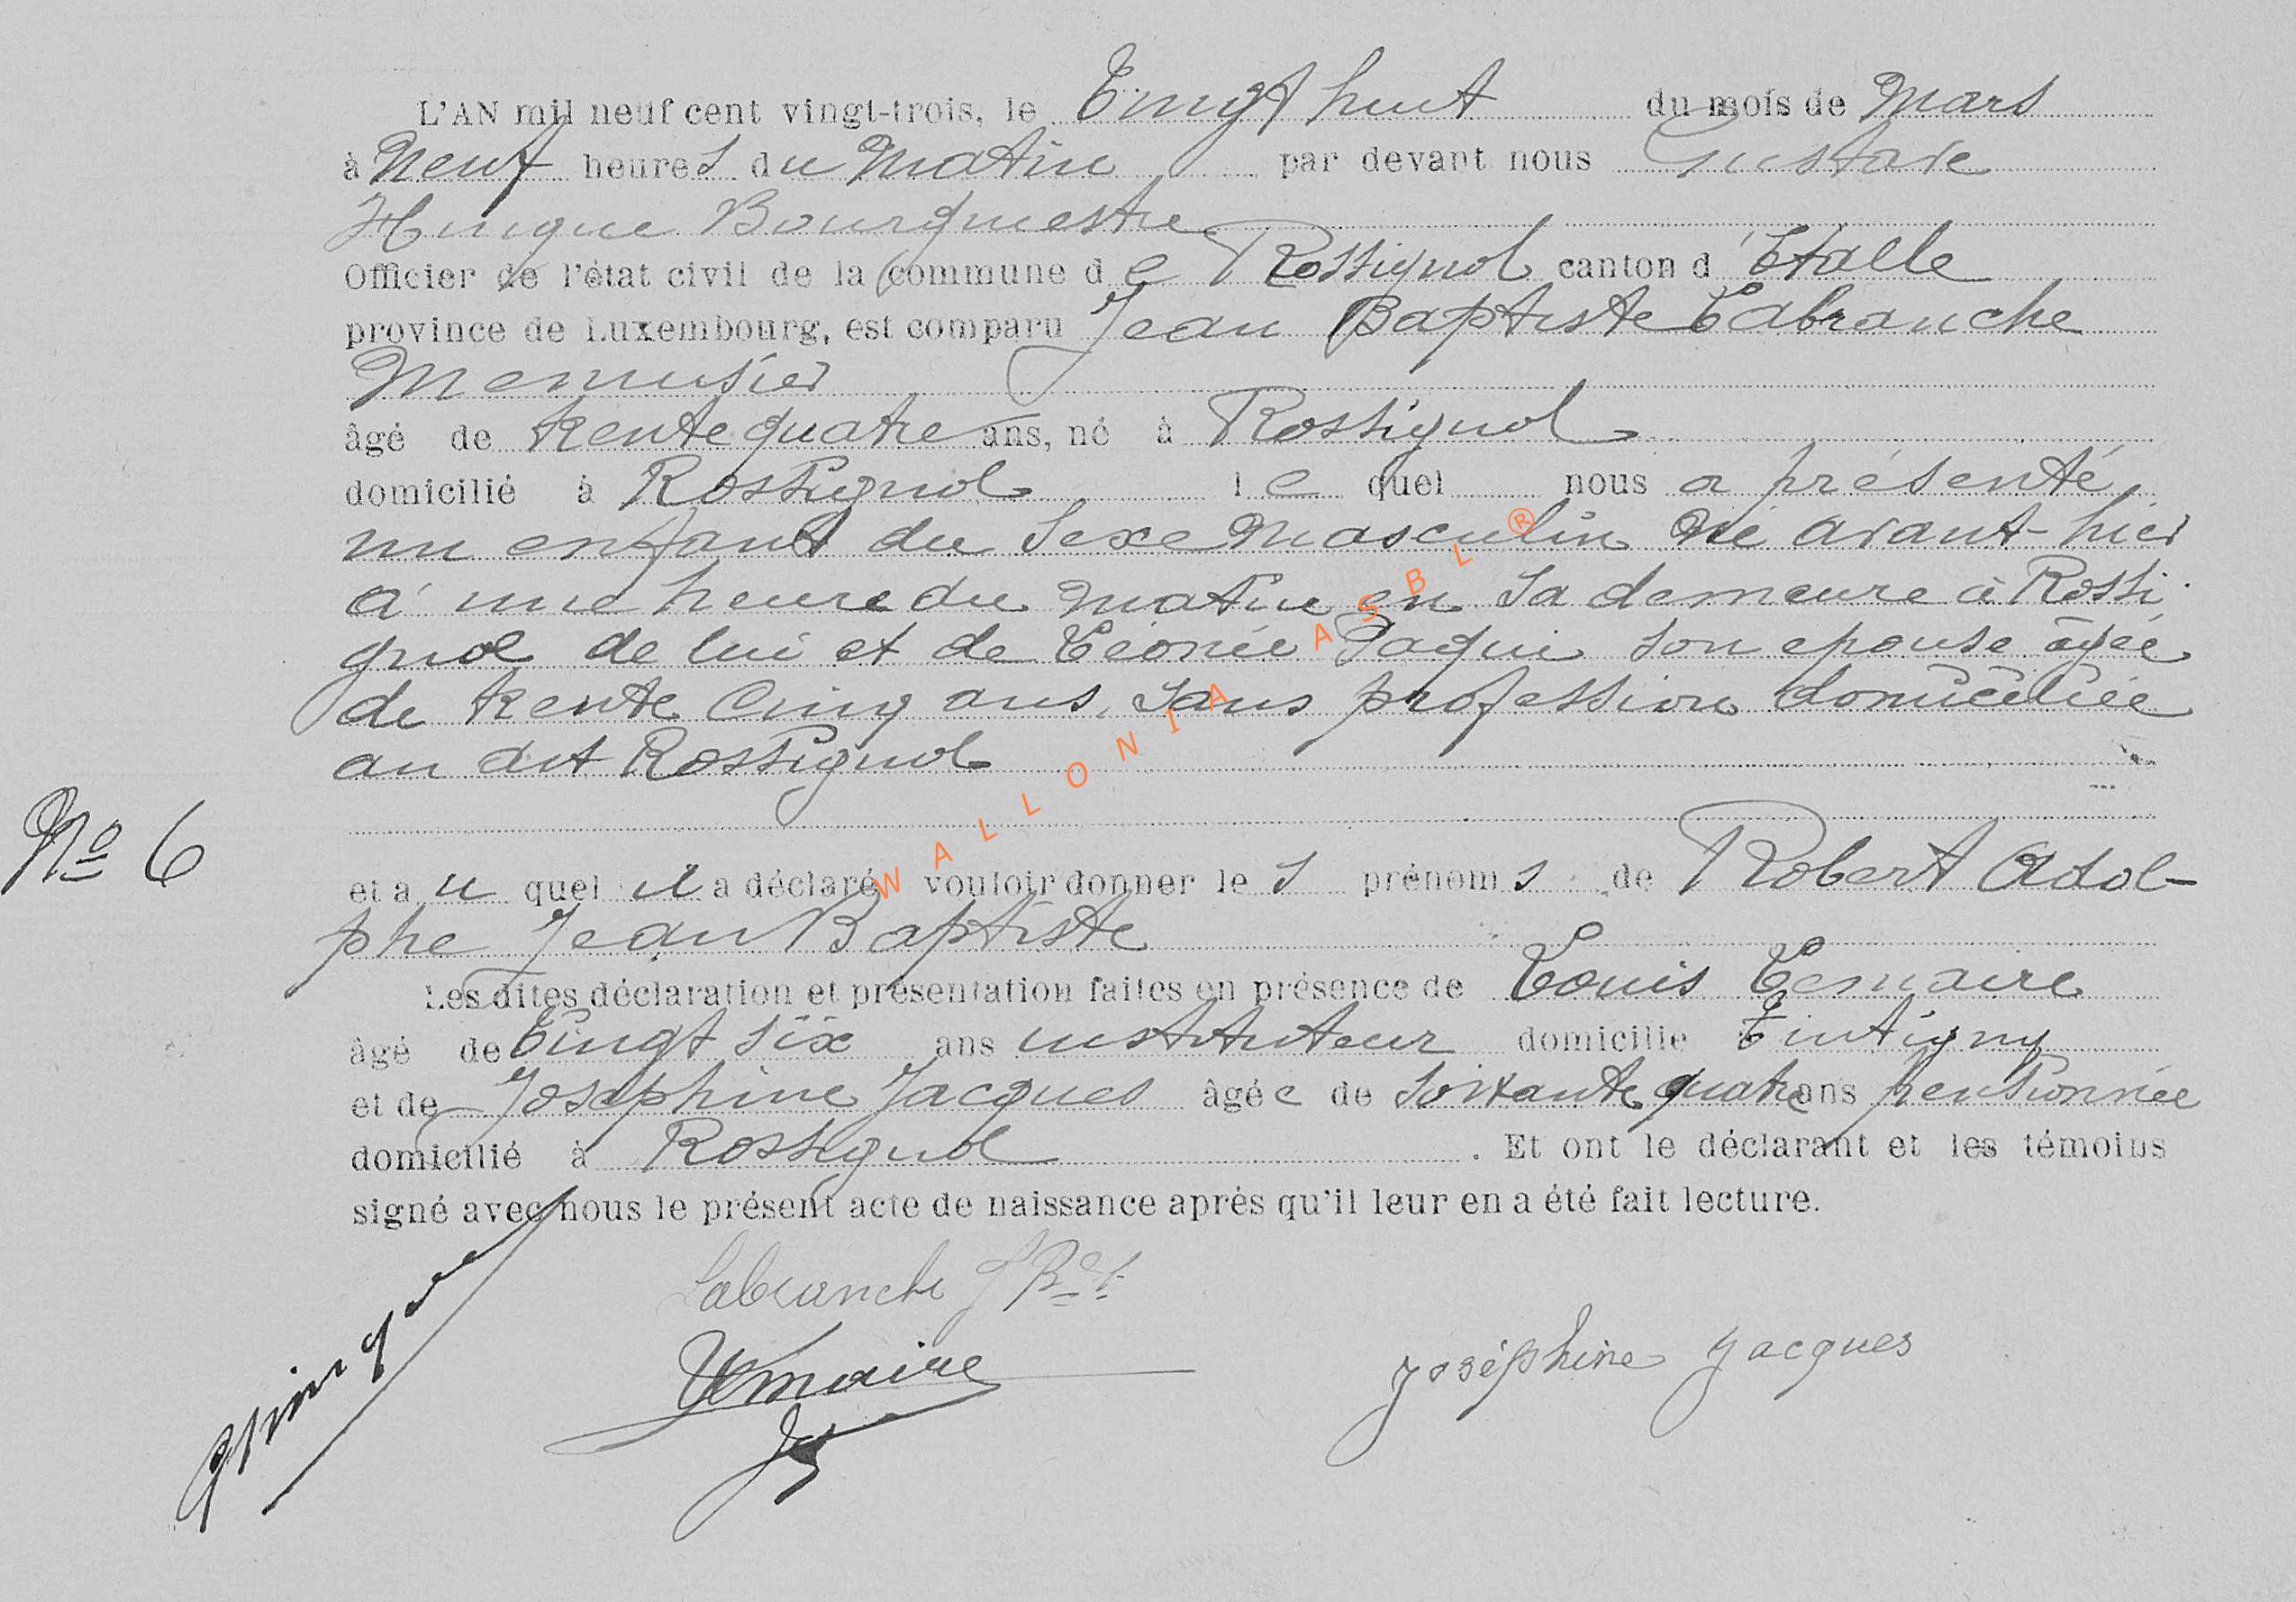 L'AN mil neuf cent vingt-trois, le Vingt huit du mois de Mars
à Neuf heures du Matin par devant nous Gustave
Hinque Bourgmestre
Officier de l'état civil de la commune de Rossignol canton d'Etalle
province de Luxembourg, est comparu Jean Baptiste Labranche
Menuisier
âgé de trente quatre ans, né à Rossignol
domicilié à Rossignol le quel nous a présenté
un enfant du sexe Masculin Né avant-hier
à une heure du matin en sa demeure à Rossi
gnol de lui et de Léonie Jaqui son epouse âgée
de trente Cinq ans, sans profession domiciliée
au dit Rossignol
No 6
et au quel il a déclaré vouloir donner les prénoms de Robert Adol-
phe Jean Baptiste
Les dites déclaration et présentation faites en présence de Louis Lemaire
âgé de Vingt six ans instituteur domicilié Tintigny
et de Joséphine Jacques âgée de soixante quatre ans pensionnée
domicilié à Rossignol. Et ont le déclarant et les témoins
signé avec nous le présent acte de naissance après qu'il leur en a été fait lecture.
Labranche J Bst
Ghinque
Lemaire
Joséphine Jacques
WALLONIA ASBL ®